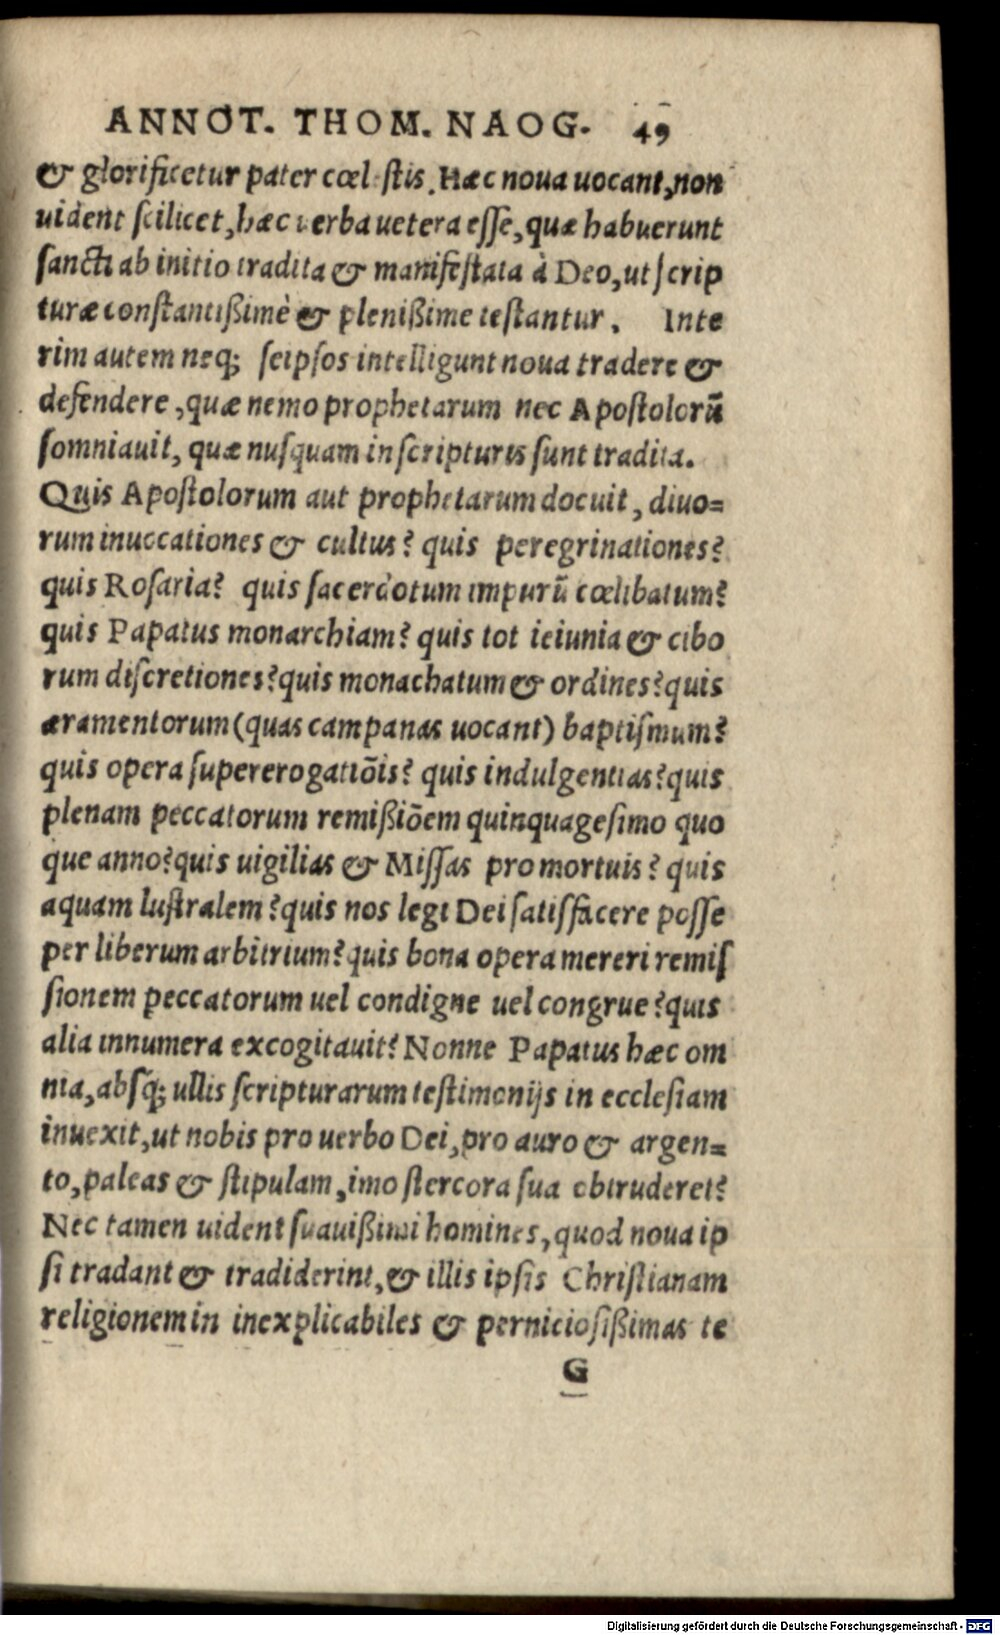 ANNOT. THOM. NAOG. 49
& glorificetur pater cœl stis. Hæc noua uocant, non
uident scilicet, hæc uerba uetera esse, quæ habuerunt
sancti ab initio tradita & manifestata à Deo, ut scrip
turæ constantißimè & plenißime testantur. Inte
rim autem neq; seipsos intelligunt noua tradere &
defendere, quæ nemo prophetarum nec Apostolorũ
somniauit, quæ nusquam in scripturis sunt tradita.
Quis Apostolorum aut prophetarum docuit, diuo=
rum inuocationes & cultus? quis peregrinationes?
quis Rosaria? quis sacerdotum impurũ cœlibatum?
quis Papatus monarchiam? quis tot ieiunia & cibo
rum discretiones? quis monachatum & ordines? quis
æramentorum (quas campanas uocant) baptismum?
quis opera supererogatiõis? quis indulgentias? quis
plenam peccatorum remißiõem quinquagesimo quo
que anno? quis uigilias & Missas pro mortuis? quis
aquam lustralem? quis nos legi Dei satisfacere posse
per liberum arbitrium? quis bona opera mereri remis
sionem peccatorum uel condigne uel congrue? quis
alia innumera excogitauit? Nonne Papatus hæc om
nia, absq; ullis scripturarum testimonijs in ecclesiam
inuexit, ut nobis pro uerbo Dei, pro auro & argen=
to, paleas & stipulam, imo stercora sua obtruderet?
Nec tamen uident suauißimi homines, quod noua ip
si tradant & tradiderint, & illis ipsis Christianam
religionem in inexplicabiles & perniciosißimas te
G
Digitalisierung gefördert durch die Deutsche Forschungsgemeinschaft - DFG